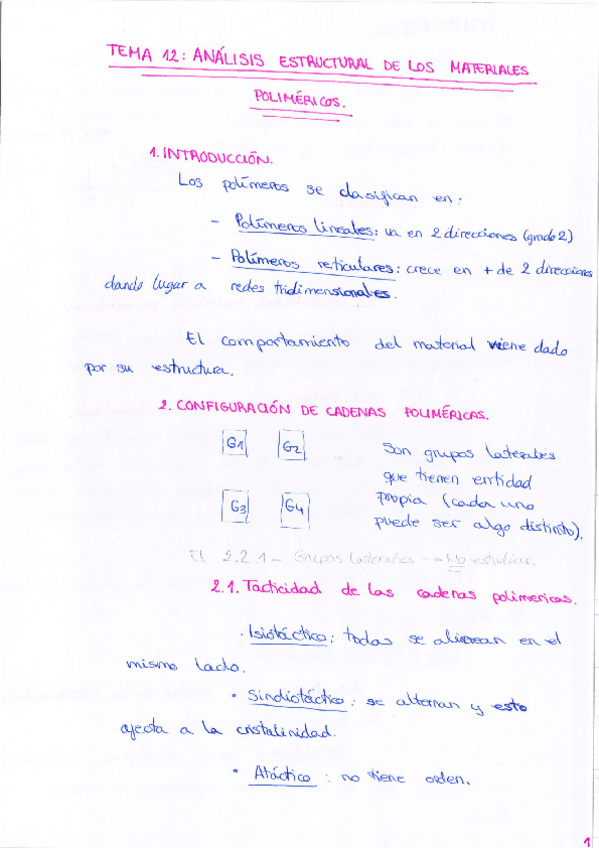 TEMA 12: ANÁLISIS ESTRUCTURAL DE LOS MATERIALES
POLIMÉRICOS.
1. INTRODUCCIÓN.
Los polímeros se clasifican en:
- Polímeros lineales: va en 2 direcciones (grado 2)
- Polímeros reticulares: crece en + de 2 direcciones
dando lugar a redes tridimensionales.
El comportamiento del material viene dado
por su estructura.
2. CONFIGURACIÓN DE CADENAS POLIMÉRICAS.
G1 G2
G3 G4
Son grupos laterales
que tienen entidad
propia (cada uno
puede ser algo distinto).
El 2.2.1 - Grupos laterales → No estudiar.
2.1. Tacticidad de las cadenas polimericas.
· Isiotáctico: todas se alinean en el
mismo lado.
• Sindiotáctico: se alternan y esto
afecta a la cristalinidad.
• Atáctico: no tiene orden.
1